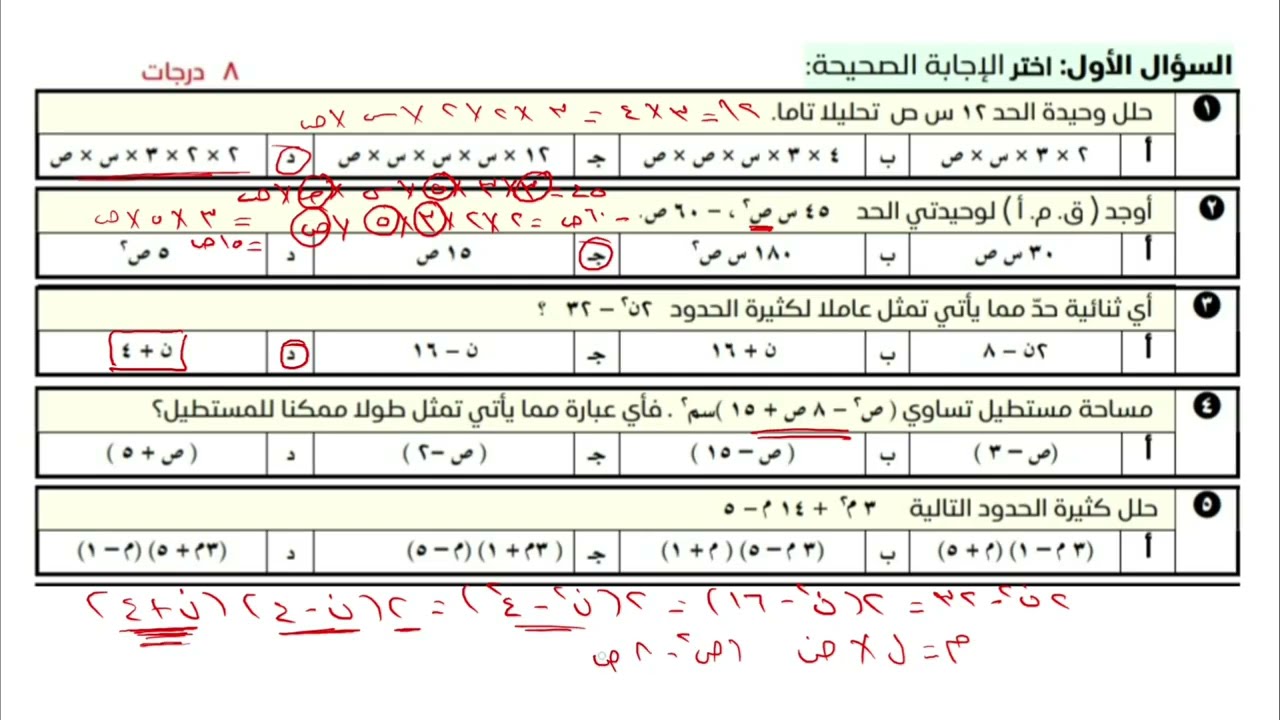 السؤال الأول: اختر الإجابة الصحيحة:
٨ درجات
١ حلل وحيدة الحد ١٢ س ص تحليلا تاما. ١٢ = ٣ × ٤ = ٣ × ٢ × ٢ × س × ص
أ ٢ × ٣ × س × ص ب ٤ × ٣ × س × ص × ص جـ ١٢ × س × س × س × ص د ٢ × ٢ × ٣ × س × ص
٤٥ = ٣ × ٣ × ٥ × س × ص × ص
٢ أوجد ( ق. م. أ ) لوحيدتي الحد ٤٥ س ص٢ ، – ٦٠ ص. – ٦٠ ص = ٢ × ٢ × ٣ × ٥ × ص = ٣ × ٥ × ص
= ١٥ ص
أ ٣٠ س ص ب ١٨٠ س ص٢ جـ ١٥ ص د ٥ ص٢
٣ أي ثنائية حدّ مما يأتي تمثل عاملا لكثيرة الحدود ٢ن٢ – ٣٢ ؟
أ ٢ن – ٨ ب ن + ١٦ جـ ن – ١٦ د ن + ٤
٤ مساحة مستطيل تساوي ( ص٢ – ٨ ص + ١٥ )سم٢ . فأي عبارة مما يأتي تمثل طولا ممكنا للمستطيل؟
أ (ص – ٣ ) ب ( ص – ١٥ ) جـ ( ص –٢ ) د ( ص + ٥ )
٥ حلل كثيرة الحدود التالية ٣ م٢ + ١٤ م – ٥
أ (٣ م – ١) (م + ٥) ب (٣ م – ٥) ( م + ١) جـ ( ٣م + ١) (م – ٥) د (٣م + ٥) (م – ١)
٢ ن٢ – ٣٢ = ٢ (ن٢ – ١٦) = ٢ (ن٢ – ٤٢) = ٢ (ن – ٤) (ن + ٤)
م = ل × ض ٦ص٢ – ٨ ص